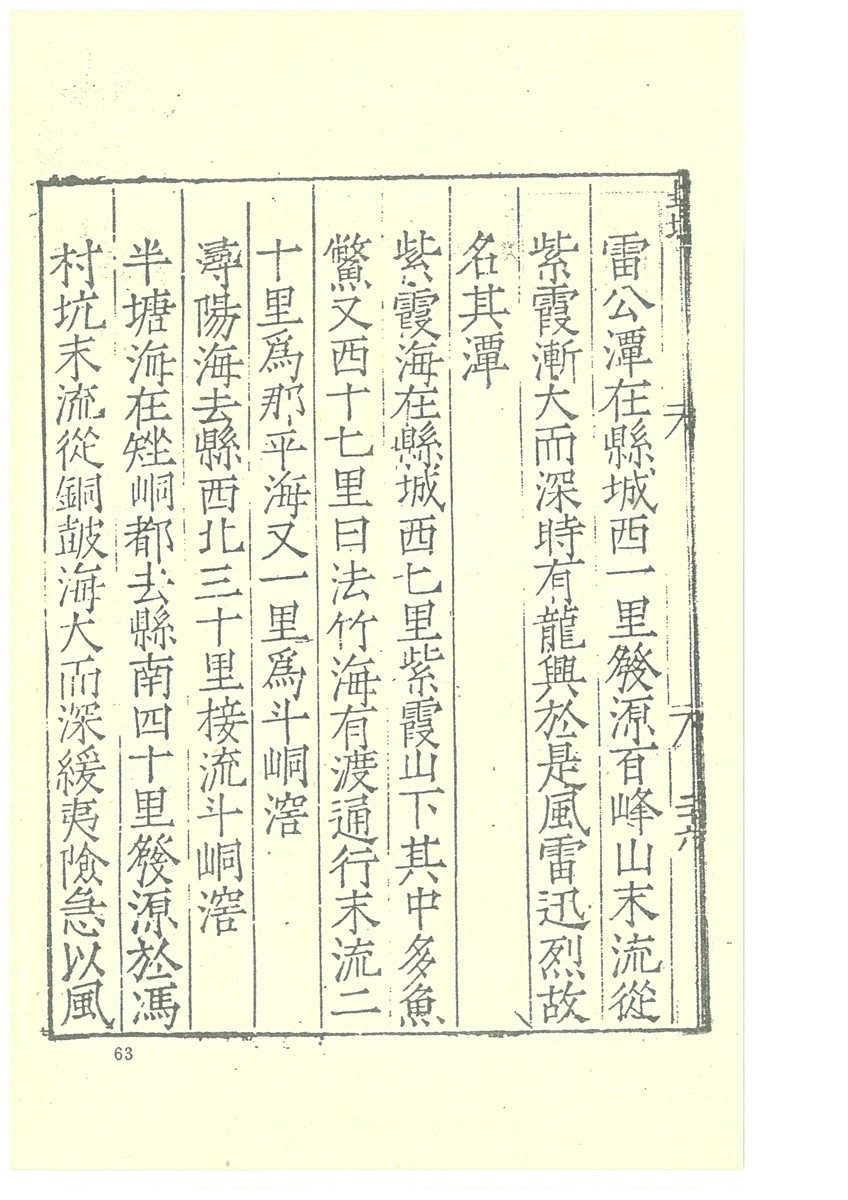 雷公潭在縣城西一里發源百峰山末流從
紫霞漸大而深時有龍興於是風雷迅烈故
名其潭
紫霞海在縣城西七里紫霞山下其中多魚
鱉又西十七里曰法竹海有渡通行末流二
十里爲那平海又一里爲斗峒滘
潯陽海去縣西北三十里接流斗峒滘
半塘海在矬峒都去縣南四十里發源於馮
村坑末流從銅鼓海大而深緩夷險急以風
63